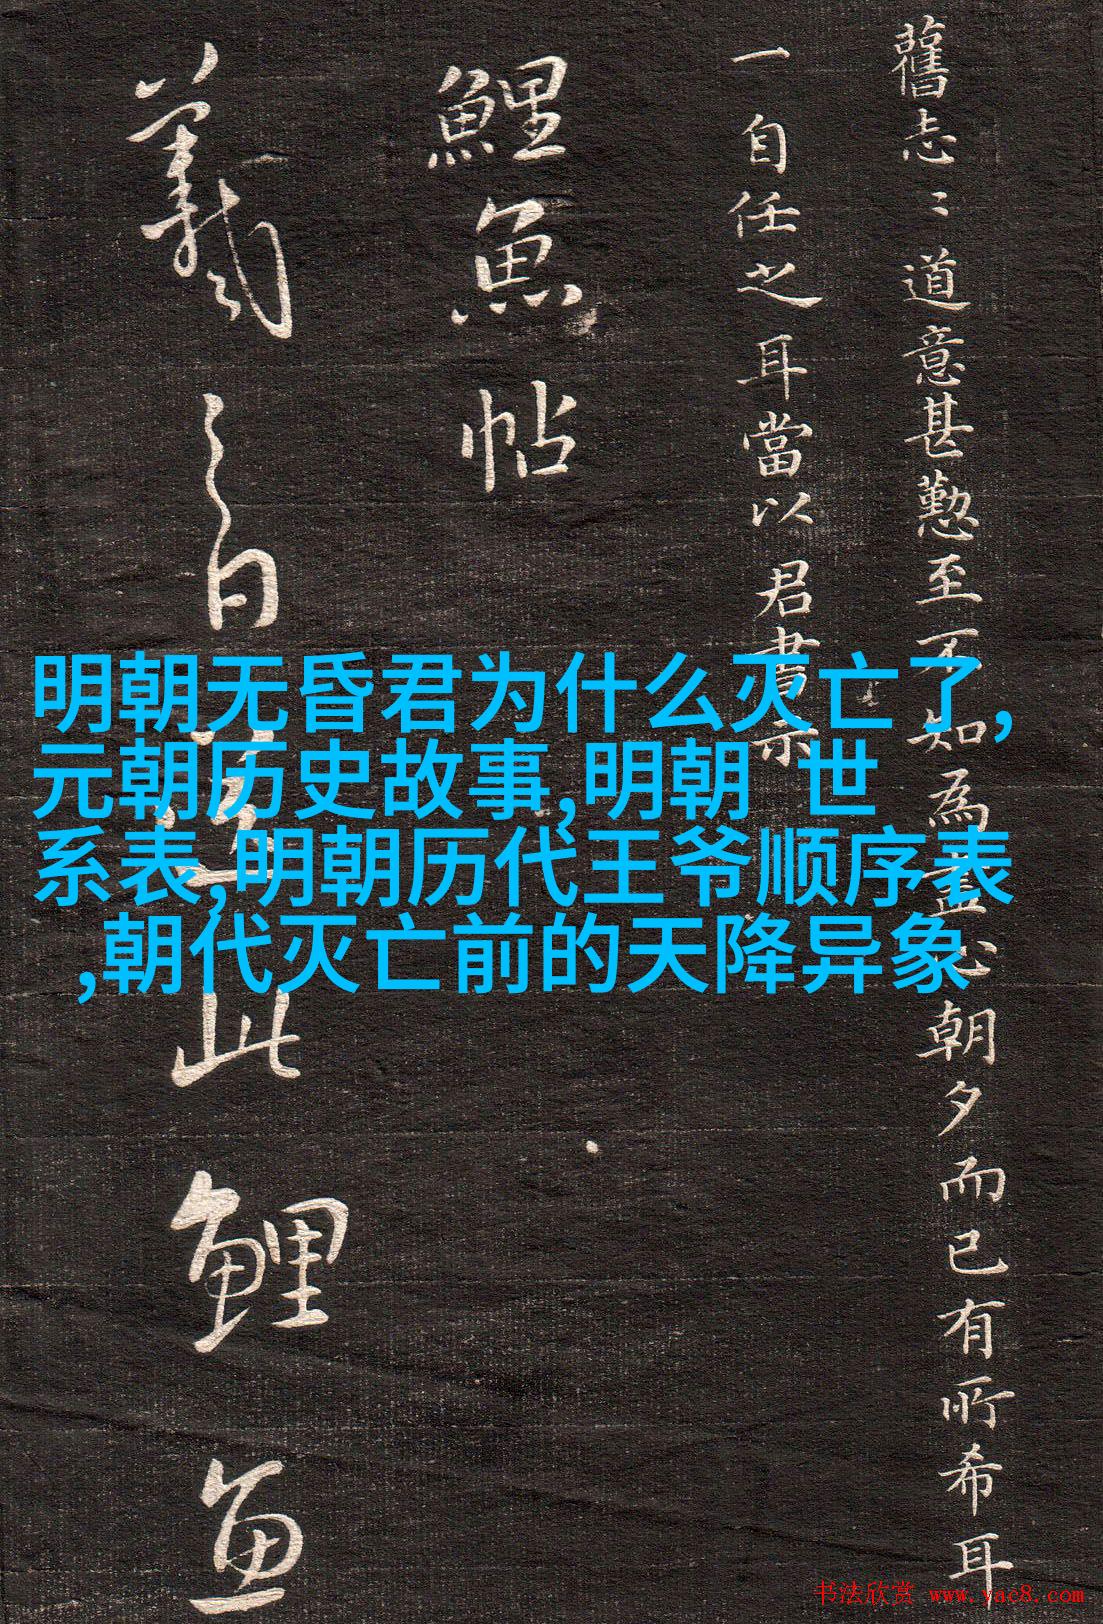 舊志〻道意甚懃至不知為盡心朝夕而已有所希耳
一自任之耳當以君書示
鯉魚帖
羲之白送此鯉魚
明朝无昏君为什么灭亡了,
元朝历史故事,明朝 世
系表,明朝历代王爷顺序表
,朝代灭亡前的天降异象
书法欣赏 www.yac8.com